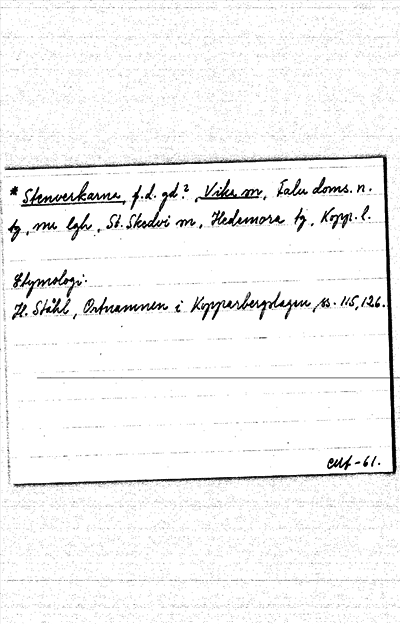 * Stenverkarna, f.d. gd?, Vika sn, Falu doms. n.
tg, nu lgh, St. Skedvi sn, Hedemora tg, Kopp. l.
Etymologi:
H. Ståhl, Ortnamnen i Kopparbergslagen, ss. 115, 126.
-61.